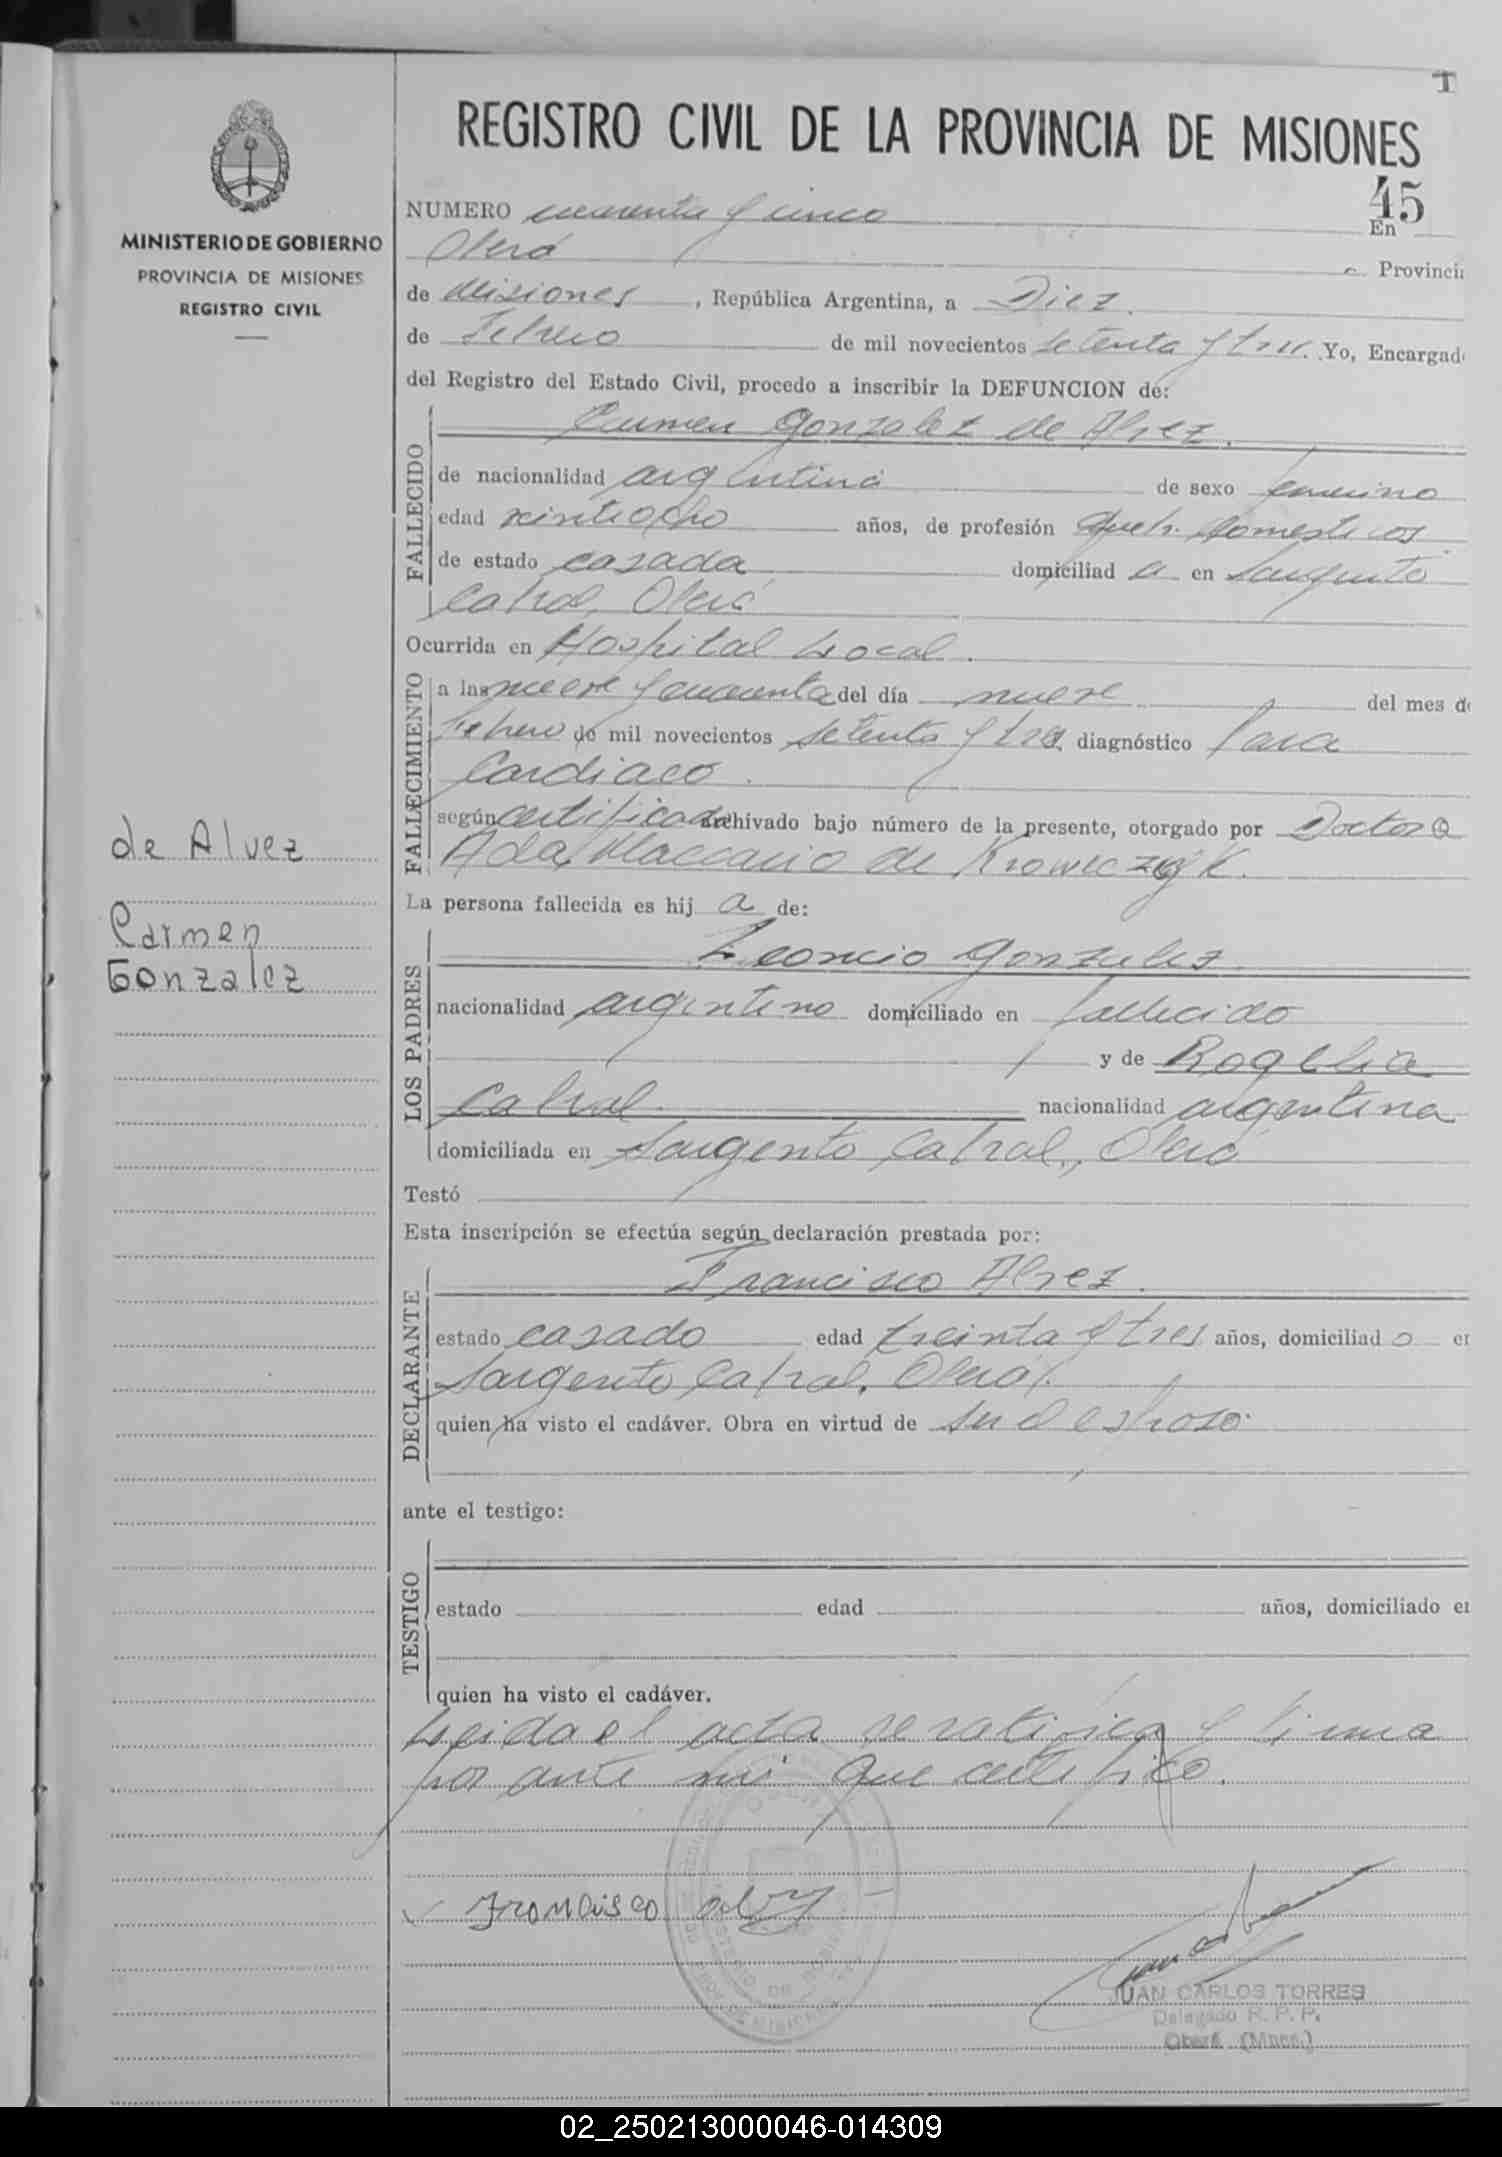 I
REGISTRO CIVIL DE LA PROVINCIA DE MISIONES
45
MINISTERIO DE GOBIERNO
PROVINCIA DE MISIONES
REGISTRO CIVIL
NUMERO cuarenta y cinco En
Oberá Provincia
de Misiones, República Argentina, a Diez
de Febrero de mil novecientos setenta y tres. Yo, Encargad
del Registro del Estado Civil, procedo a inscribir la DEFUNCION de:
Carmen Gonzalez de Alvez.
FALLECIDO
de nacionalidad argentina de sexo femenino
edad veintiocho años, de profesión Queh. domesticos
de estado casada domiciliad a en Sargento
Cabral, Oberá
Ocurrida en Hospital Local.
FALLECIMIENTO
a las nueve y cuarenta del día nueve del mes d
Febrero de mil novecientos setenta y tres, diagnóstico Paro
Cardiaco.
según certificado archivado bajo número de la presente, otorgado por Doctora
Ada de
de Alvez
Carmen
Gonzalez
La persona fallecida es hij a de:
LOS PADRES
Leoncio Gonzalez
nacionalidad argentino domiciliado en fallecido
y de Rogelia
Cabral nacionalidad argentina
domiciliada en Sargento Cabral, Oberá
Testó
Esta inscripción se efectúa según declaración prestada por:
DECLARANTE
Francisco Alvez.
estado casado edad treinta y tres años, domiciliad o en
Sargento Cabral, Oberá.
quien ha visto el cadáver. Obra en virtud de su d esposo.
ante el testigo:
TESTIGO
estado edad años, domiciliado en
quien ha visto el cadáver.
Leida el acta se ratifica y firma
por ante mi que certifico.
Francisco alvez
JUAN CARLOS TORRES
Delegado R. P. P.
Oberá (Mnes.)
02_250213000046-014309